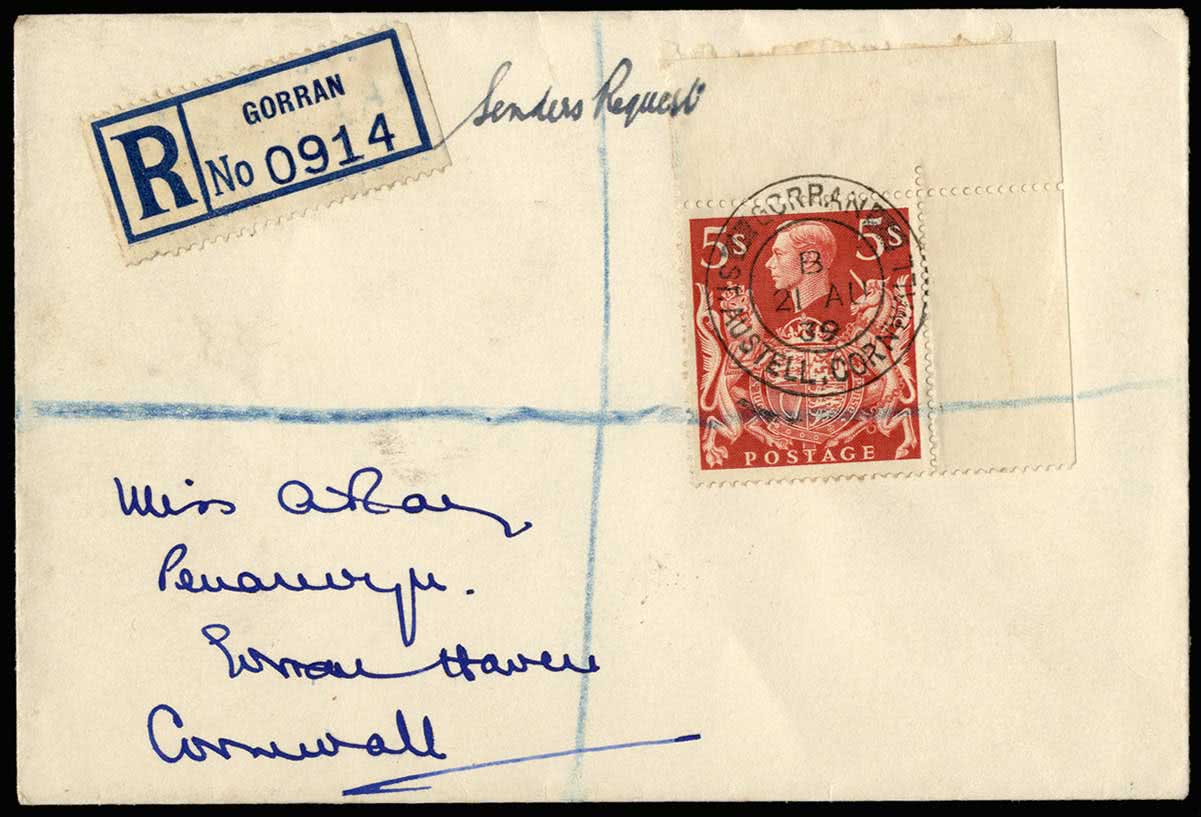 GORRAN
R No 0914
Senders Request
5s 5s
GORRAN
B
21 AU
39
ST. AUSTELL. CORNWALL
POSTAGE
Miss
Gorran Haven
Cornwall